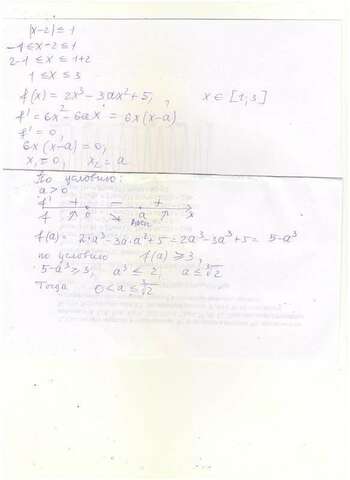 |x-2| ≤ 1
-1 ≤ x-2 ≤ 1
2-1 ≤ x ≤ 1+2
1 ≤ x ≤ 3
f(x) = 2x³ - 3ax² + 5, x ∈ [1;3]
f' = 6x² - 6ax = 6x(x-a)
f' = 0,
6x(x-a) = 0,
x₁ = 0, x₂ = a
По условию:
a > 0
f' + - +
f ↗ 0 ↘ a ↗ x
f(a) = 2·a³ - 3a·a² + 5 = 2a³ - 3a³ + 5 = 5-a³
по условию f(a) ≥ 3,
5-a³ ≥ 3, a³ ≤ 2, a ≤ ∛2
Тогда 0 < a ≤ ∛2